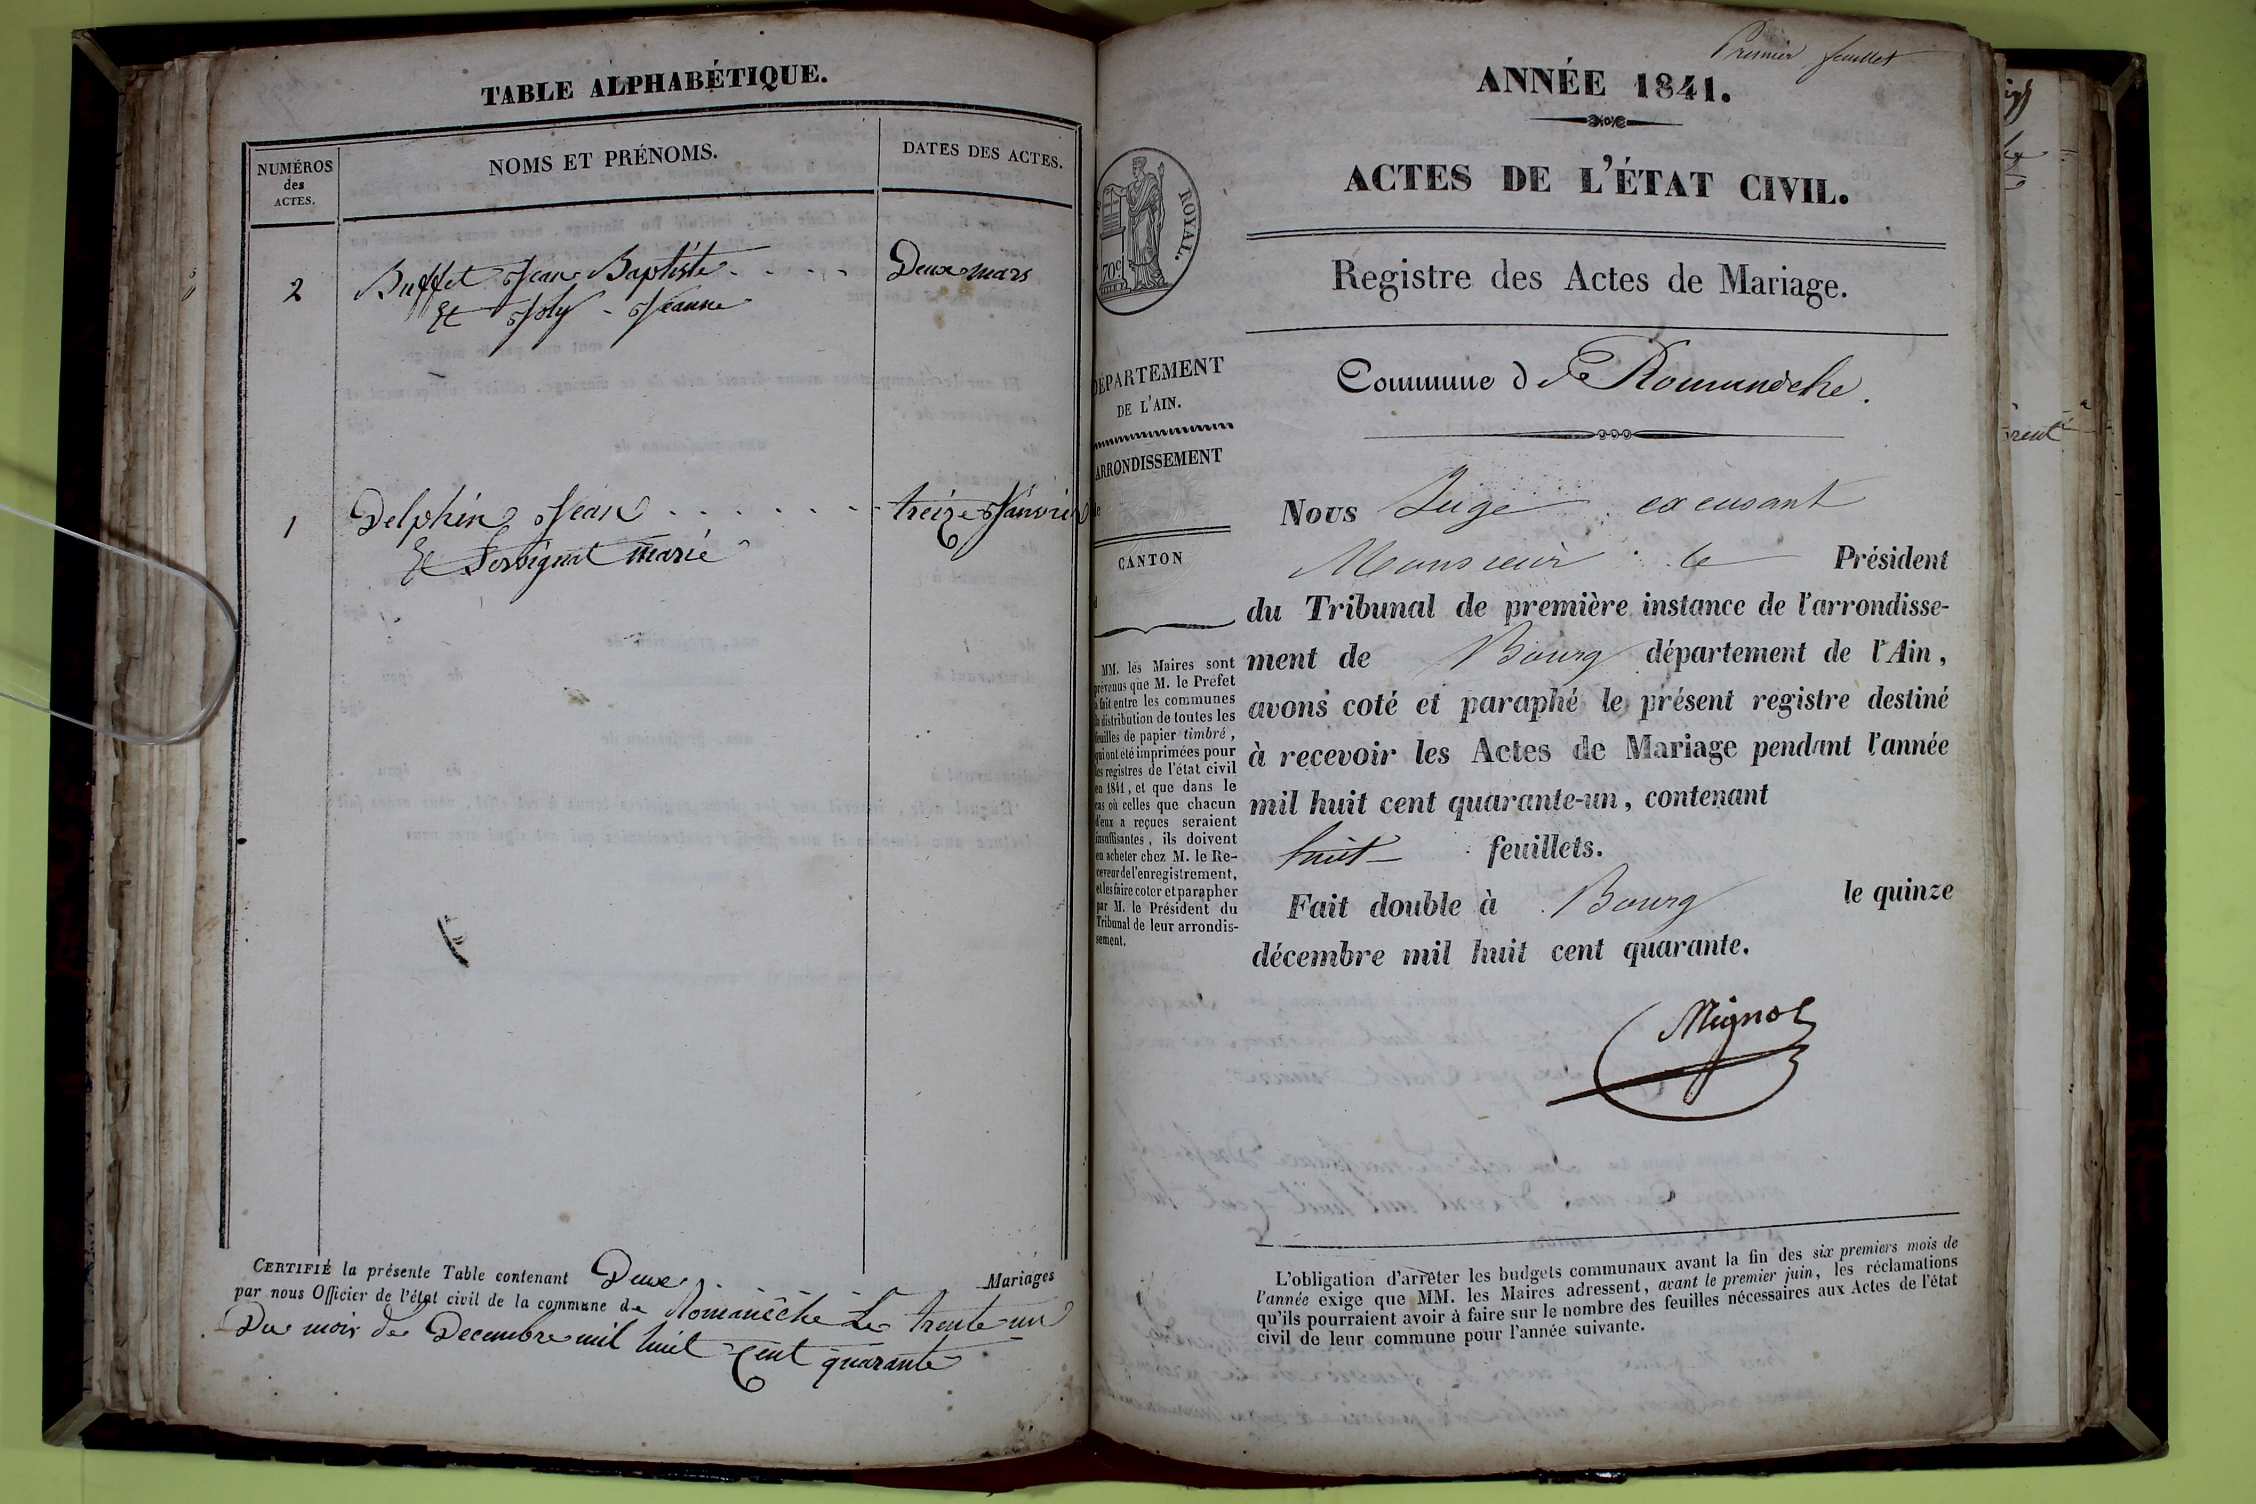 TABLE ALPHABÉTIQUE.
NUMÉROS
des
ACTES.
NOMS ET PRÉNOMS.
DATES DES ACTES.
2
Buffet Jean Baptiste
Deux mars
Et Joly - Jeanne
1
Delphin Jean
treize Janvier
Et Servignat marie
CERTIFIÉ la présente Table contenant Deux Mariages
par nous Officier de l'état civil de la commune de Romanêche Le trente-un
Du mois de Decembre mil huit-cent quarante
Premier feuillet
ANNÉE 1841.
ACTES DE L'ÉTAT CIVIL.
Registre des Actes de Mariage.
ROYAL.
70c
DÉPARTEMENT
DE L'AIN.
ARRONDISSEMENT
de
CANTON
d
MM. les Maires sont
prévenus que M. le Préfet
a fait entre les communes
la distribution de toutes les
feuilles de papier timbré,
qui ont été imprimées pour
les registres de l'état civil
en 1841, et que dans le
cas où celles que chacun
d'eux a reçues seraient
insuffisantes, ils doivent
en acheter chez M. le Re-
ceveur de l'enregistrement,
et les faire coter et parapher
par M. le Président du
Tribunal de leur arrondis-
sement.
Commune d de Romanèche.
Nous Juge excusant
Monsieur le Président
du Tribunal de première instance de l'arrondisse-
ment de Bourg département de l'Ain,
avons coté et paraphé le présent registre destiné
à recevoir les Actes de Mariage pendant l'année
mil huit cent quarante-un, contenant
huit feuillets.
Fait double à Bourg le quinze
décembre mil huit cent quarante.
Mignot
L'obligation d'arrêter les budgets communaux avant la fin des six premiers mois de
l'année exige que MM. les Maires adressent, avant le premier juin, les réclamations
qu'ils pourraient avoir à faire sur le nombre des feuilles nécessaires aux Actes de l'état
civil de leur commune pour l'année suivante.